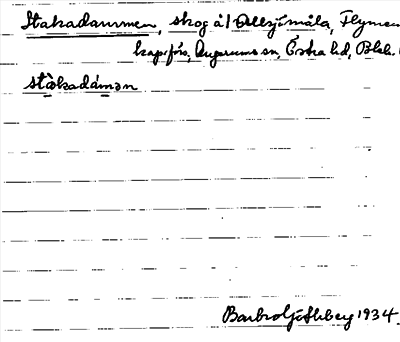 Stakadammen, skog å/ Allsjömåla, Flymen
kapsfös, Augerums sn, Östra hd, Blek.
stakadámən
Barbro Ljéthberg 1934.